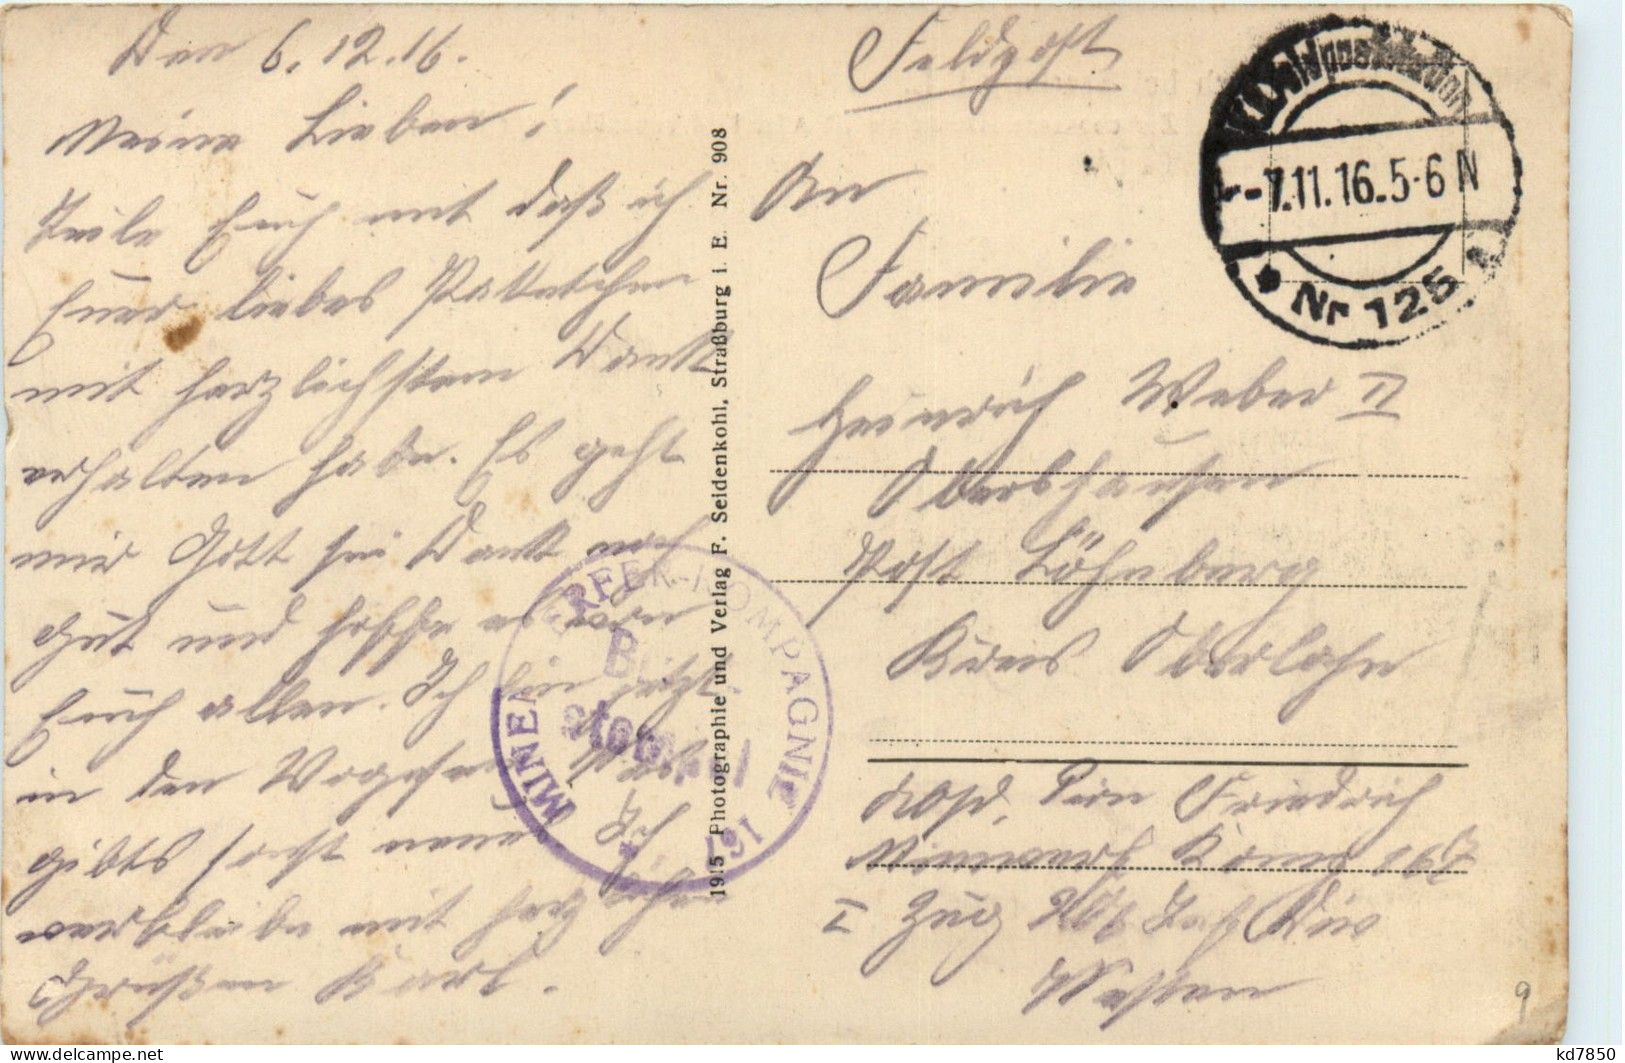 Den 6.12.16.
Meine Lieben!
Teile Euch mit daß ich
Euer liebes Paketchen
mit herzlichstem Dank
erhalten habe. Es geht
mir Gott sei Dank noch
gut und hoffe es von
Euch allen. Ich bin jetzt
in den Vogesen
gibts sonst neues Ich
verbleibe mit herzlichen
Grüßen Karl.
1915 Photographie und Verlag F. Seidenkohl, Straßburg i. E. Nr. 908
MINENWERFER-KOMPAGNIE 167
Feldpost
-7.11.16.5-6 N
* Nr 125
An
Familie
Heinrich Weber II
Obershausen
Post Löhnberg
Kreis Oberlahn
Absd. Friedrich
Minenwerf Komp 167
I Zug Inf Div
Westen
9
kd7850